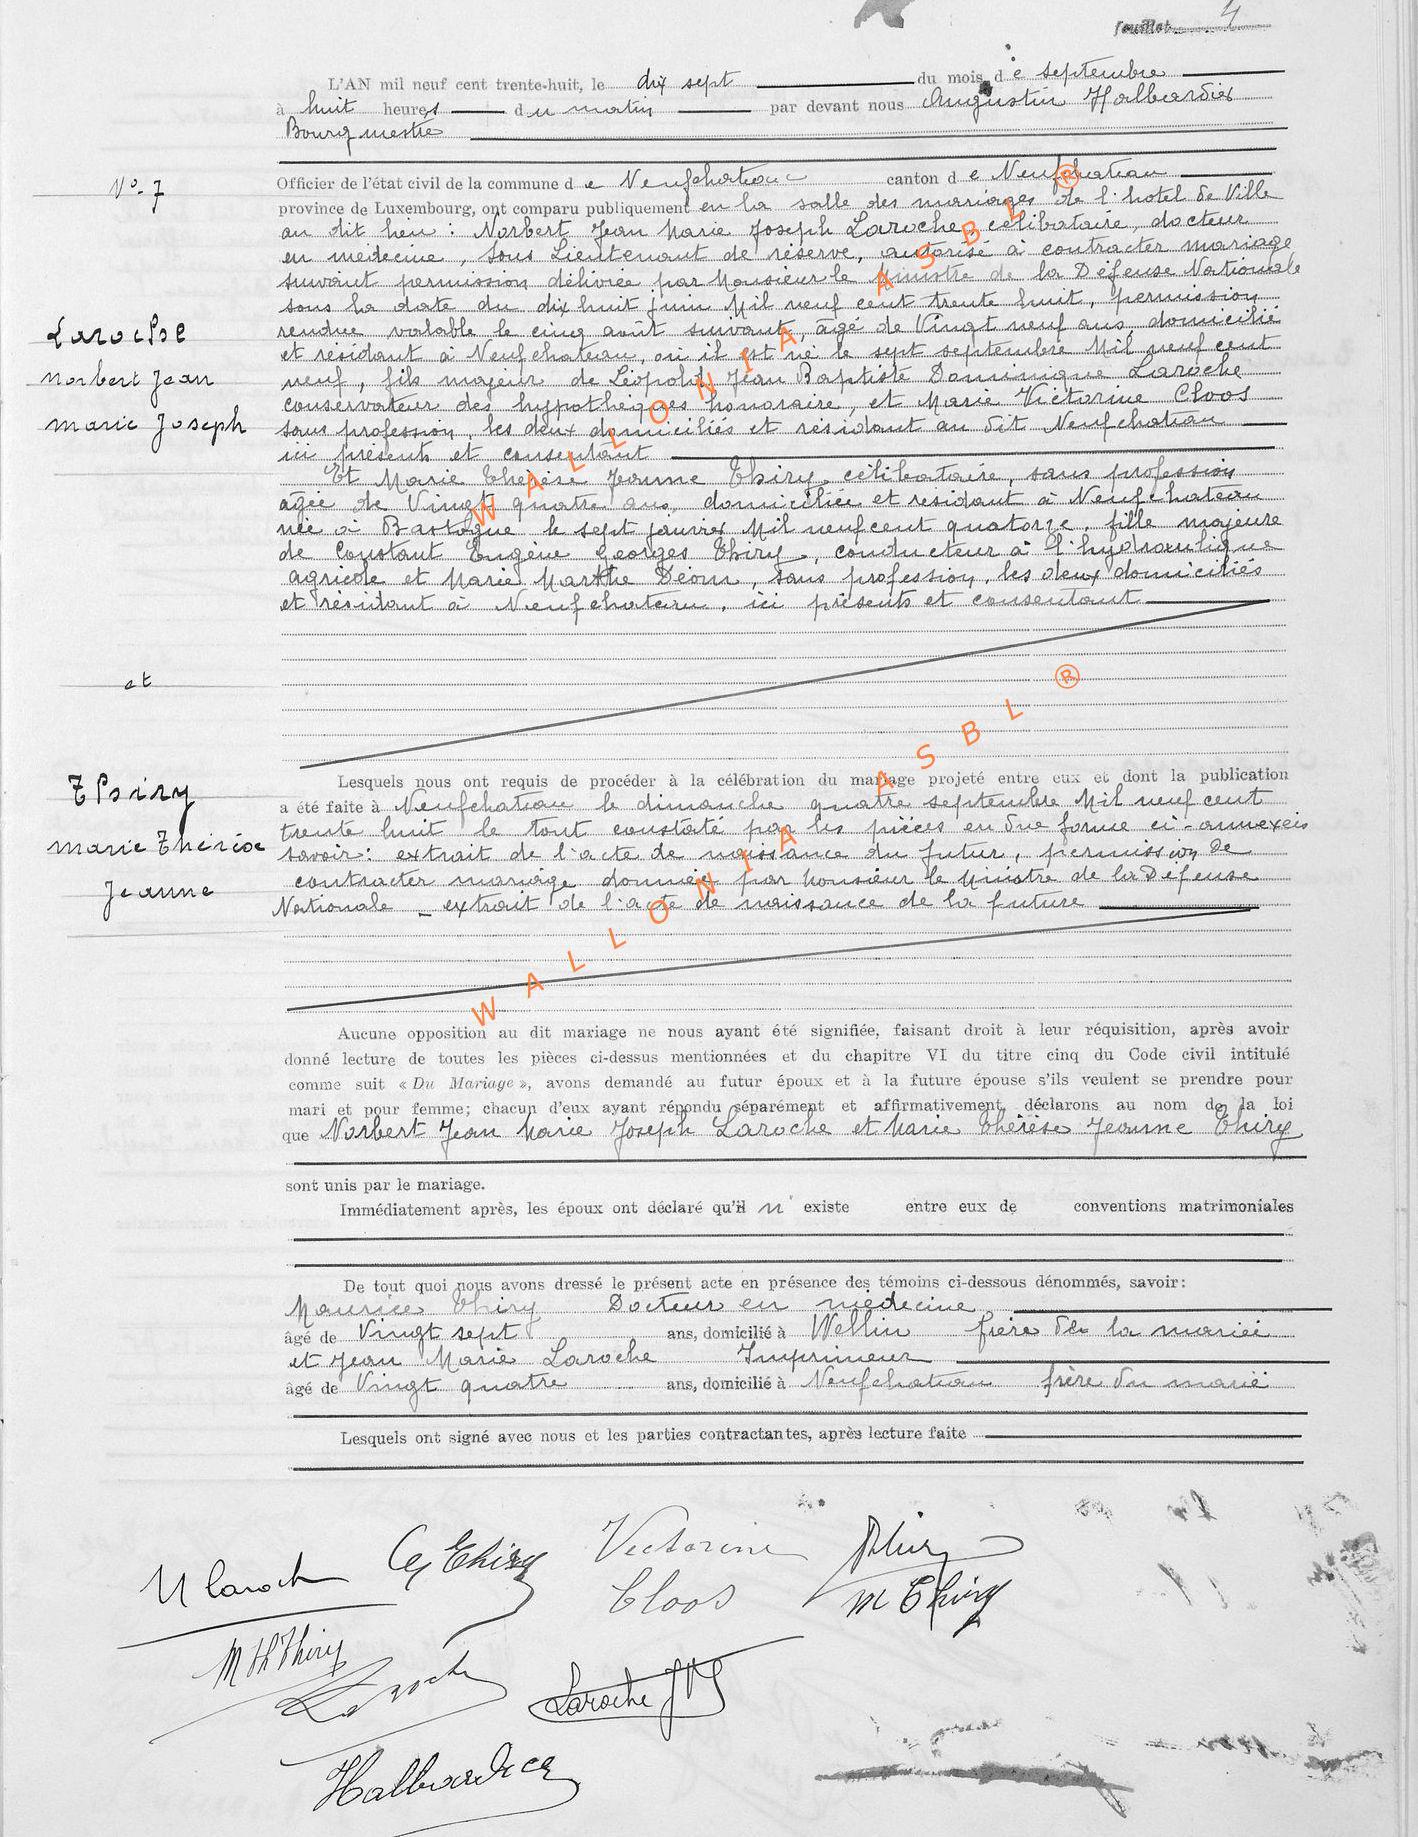 feuillet 4
L'AN mil neuf cent trente-huit, le dix sept du mois de septembre
à huit heures du matin par devant nous Augustin Halbardier
Bourgmestre
N° 7
Officier de l'état civil de la commune de Neufchateau canton de Neufchateau
province de Luxembourg, ont comparu publiquement en la salle des mariages de l'hotel de Ville
au dit lieu : Norbert Jean Marie Joseph Laroche, célibataire, docteur
en médecine, Sous Lieutenant de réserve, autorisé à contracter mariage
suivant permission délivrée par Monsieur le Ministre de la Défense Nationale
sous la date du dix huit juin Mil neuf cent trente huit, permission
rendue valable le cinq août suivant, âgé de Vingt neuf ans, domicilié
et résidant à Neufchateau, où il est né le sept septembre Mil neuf cent
neuf, fils majeur de Léopold Jean Baptiste Dominique Laroche
conservateur des hypothèques honoraire, et Marie Victorine Cloos
sans profession, les deux domiciliés et résidant au dit Neufchateau
ici présents et consentant
Laroche
Norbert Jean
Marie Joseph
Et Marie Thérèse Jeanne Thiry, célibataire, sans profession
agée de Vingt quatre ans, domiciliée et residant à Neufchateau
née à Bastogne le sept janvier Mil neuf cent quatorze, fille majeure
de Constant Eugène Georges Thiry, conducteur à l'hydraulique
agricole et Marie Marthe Déom, sans profession, les deux domiciliés
et résidant à Neufchateau, ici présents et consentant
et
Thiry
Marie Thérèse
Jeanne
Lesquels nous ont requis de procéder à la célébration du mariage projeté entre eux et dont la publication
a été faite à Neufchateau le dimanche quatre septembre Mil neuf cent
trente huit le tout constaté par les pièces en due forme ci-annexées
savoir : extrait de l'acte de naissance du futur, permission de
contracter mariage donnée par Monsieur le Ministre de la Défense
Nationale _ extrait de l'acte de naissance de la future
Aucune opposition au dit mariage ne nous ayant été signifiée, faisant droit à leur réquisition, après avoir
donné lecture de toutes les pièces ci-dessus mentionnées et du chapitre VI du titre cinq du Code civil intitulé
comme suit « Du Mariage », avons demandé au futur époux et à la future épouse s'ils veulent se prendre pour
mari et pour femme; chacun d'eux ayant répondu séparément et affirmativement, déclarons au nom de la loi
que Norbert Jean Marie Joseph Laroche et Marie Thérèse Jeanne Thiry
sont unis par le mariage.
Immédiatement après, les époux ont déclaré qu'il n' existe entre eux de conventions matrimoniales
De tout quoi nous avons dressé le présent acte en présence des témoins ci-dessous dénommés, savoir:
Maurice Thiry Docteur en médecine
âgé de Vingt sept ans, domicilié à Wellin frère de la mariée
et Jean Marie Laroche Imprimeur
âgé de Vingt quatre ans, domicilié à Neufchateau frère du marié
Lesquels ont signé avec nous et les parties contractantes, après lecture faite
N Laroche Thiry Victorine Thiry
Cloos M Thiry
M Th Thiry
Laroche Laroche JM
Halbardier
WALLONIA ASBL ®
WALLONIA ASBL ®